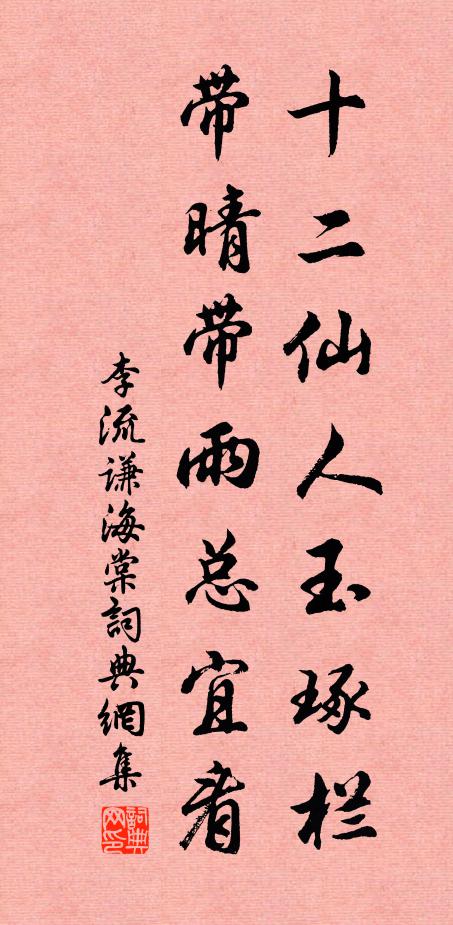 十二仙人玉琢栏
带晴带雨总宜看
李流谦海棠词典網集
詞典网印